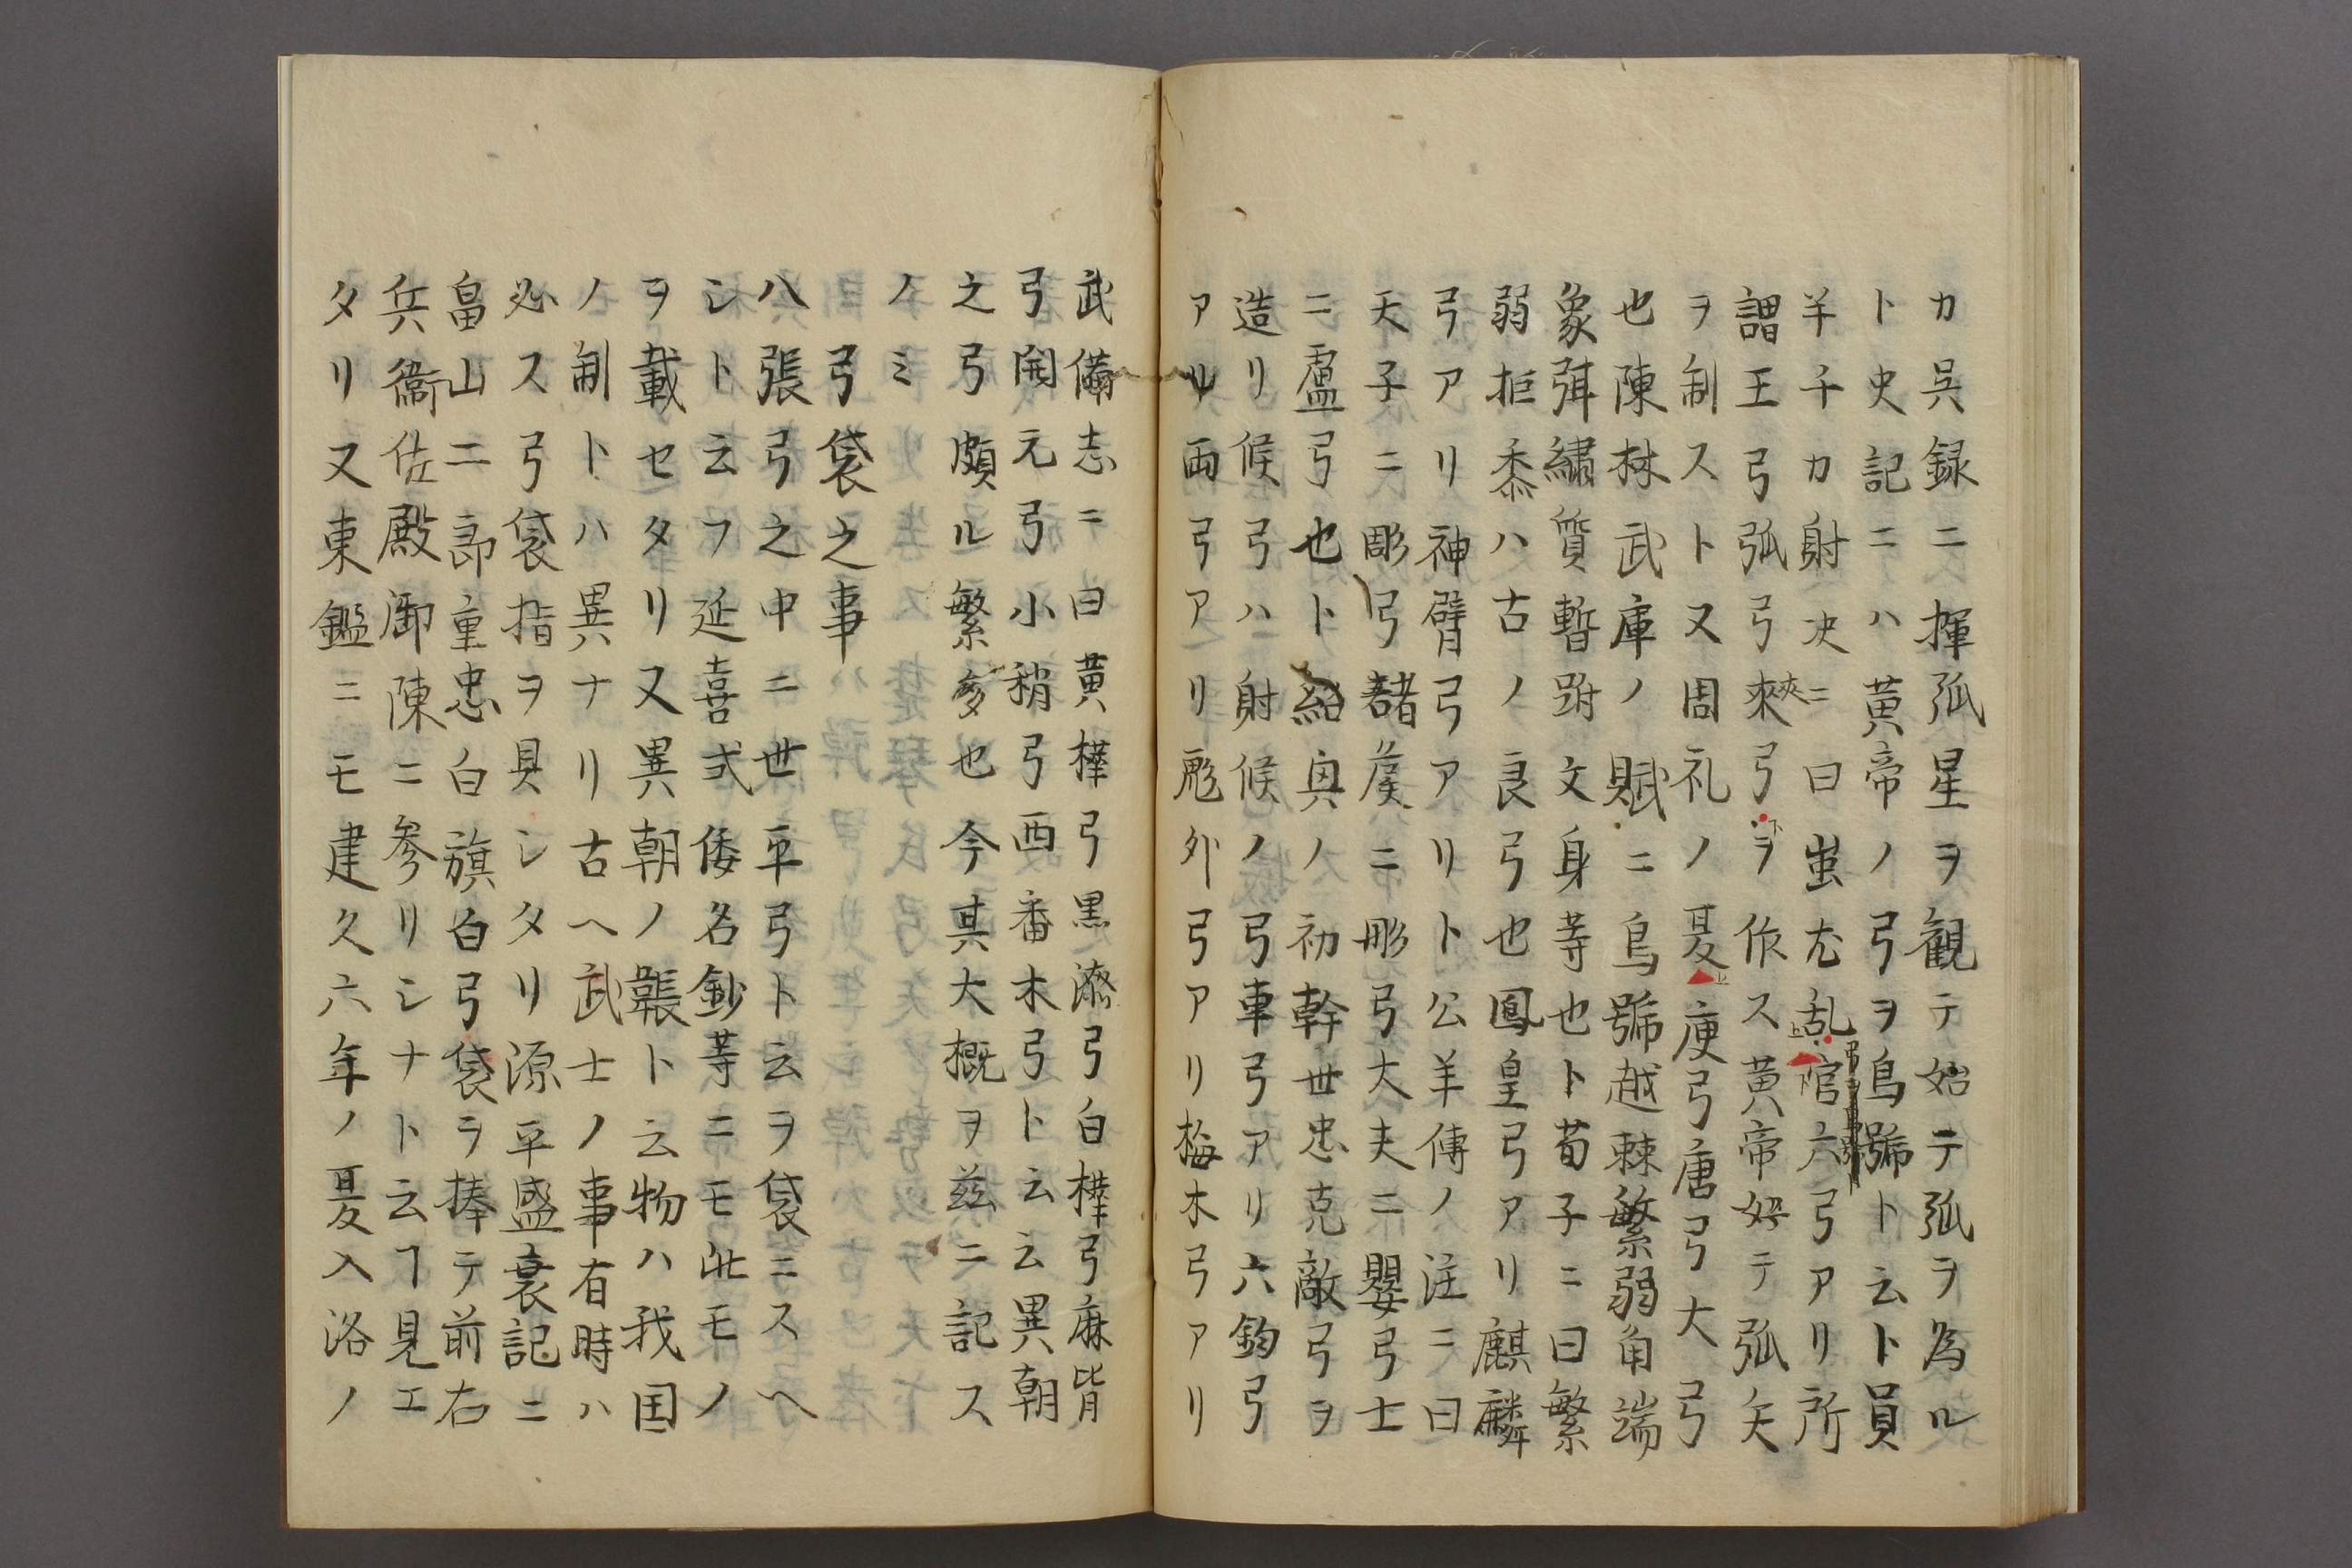 カ呉録ニハ揮弧星ヲ観テ始テ弧ヲ為ル
ト史記ニハ黄帝ノ弓ヲ烏號ト云ト員
半千カ射决ニ曰蚩尤乱官六弓アリ所
謂王弓弧弓夾弓ヲ作ス黄帝始テ弧矢
ヲ制スト又周礼ノ夏庾弓唐弓大弓
也陳林武庫ノ賦ニ烏號越棘繁弱角端
象弭繡質晢跗文身等也ト荀子ニ曰繁
弱拒黍ハ古ノ良弓也鳳皇弓アリ麒麟
弓アリ神臂弓アリト公羊傳ノ注ニ曰
天子ニ彫弓諸矦ニ彤弓大夫ニ嬰弓士
ニ盧弓也ト紹興ノ初幹世忠克敵弓ヲ
造リ候弓ハ射候ノ弓車弓アリ六鈞弓
アリ両弓アリ彪外弓アリ梅木弓アリ
武備志ニ曰黄樺弓黒漆弓白樺弓麻背
弓開元弓小稍弓西番木弓ト云云異朝
之弓頗ル繁多也今其大概ヲ茲ニ記ス
ノミ
弓袋之事
八張弓之中ニ世平弓ト云ヲ袋ニスヘ
シト云フ延喜式倭名鈔等ニモ此モノ
ヲ載セタリ又異朝ノ韔ト云物ハ我国
ノ制トハ異ナリ古ヘ武士ノ事有時ハ
必ス弓袋指ヲ具シタリ源平盛衰記ニ
畠山二郎重忠白旗白弓袋ヲ捧テ前右
兵衞佐殿御陳ニ参リシナト云ヿ見エ
タリ又東鑑ニモ建久六年ノ夏入洛ノ